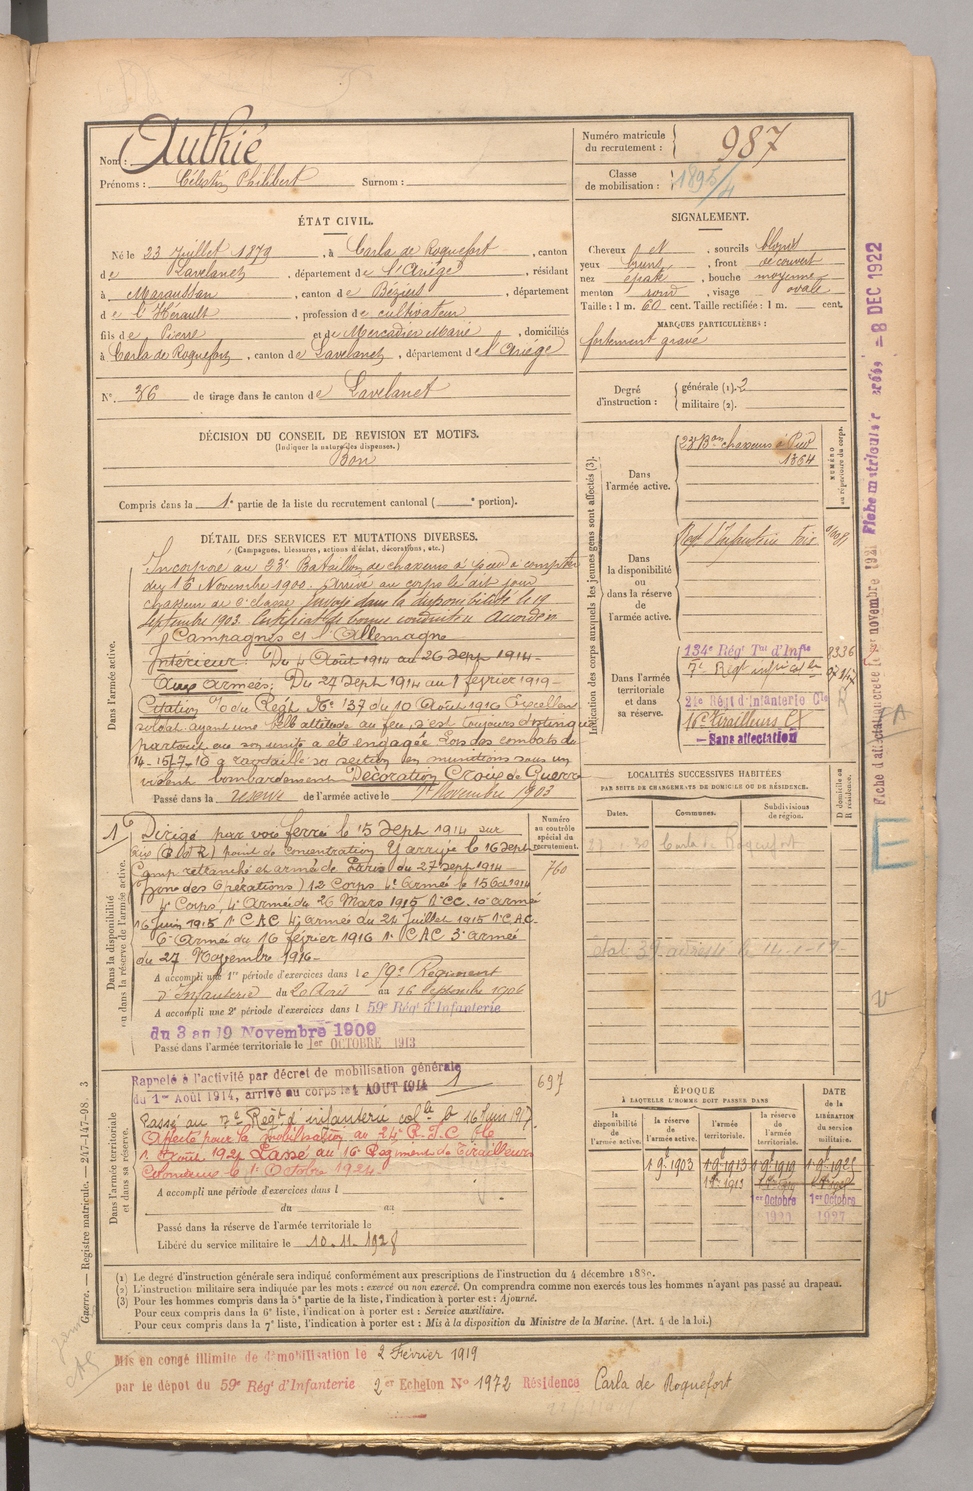 Nom : Authié
Prénoms : Célestin Philibert Surnom :
Numéro matricule du recrutement : 987
Classe de mobilisation : 1895/4
ÉTAT CIVIL.
Né le 23 Juillet 1879, à Carla de Roquefort, canton
de Lavelanet, département de l'Ariège, résidant
à Maraussan, canton de Béziers, département
de l'Hérault, profession de cultivateur
fils de Pierre et de Mercadier Marie, domiciliés
à Carla de Roquefort, canton de Lavelanet, département de l'Ariège
N° 36 de tirage dans le canton de Lavelanet
DÉCISION DU CONSEIL DE REVISION ET MOTIFS.
(Indiquer la nature des dispenses.)
Bon
Compris dans la 1e partie de la liste du recrutement cantonal ( e portion).
SIGNALEMENT.
Cheveux , sourcils blonds
yeux bruns, front découvert
nez épaté, bouche moyenne
menton rond, visage ovale
Taille : 1 m. 60 cent. Taille rectifiée : 1 m. cent.
MARQUES PARTICULIÈRES :
fortement gravé
Degré d'instruction : générale (1). 2
militaire (2).
DÉTAIL DES SERVICES ET MUTATIONS DIVERSES.
(Campagnes, blessures, actions d'éclat, décorations, etc.)
Dans l'armée active.
Incorporé au 23e Bataillon de chasseurs à pied à compter
du 16 Novembre 1900. Arrivé au corps le dit jour
chasseur de 2e classe. Envoyé dans la disponibilité le 19
septembre 1903. Certificat de bonne conduite Accordé
Campagnes Ct l'Allemagne
Intérieur : Du 4 Août 1914 au 26 Sept 1914 -
Aux Armées : Du 27 Sept 1914 au 1 février 1919 -
Citation % du Regt N° 137 du 10 Août 1916 Excellent
soldat ayant une belle attitude au feu, s'est toujours distingué
partout où son unité a été engagée Lors des combats du
14-15-7-16 a ravitaillé sa section en munitions sous un
violent bombardement Décoration Croix de Guerre
Passé dans la réserve de l'armée active le 1er Novembre 1903
Dans la disponibilité ou dans la réserve de l'armée active.
1) Dirigé par voie ferrée le 15 Sept 1914 sur
point de concentration Y arrivé le 16 Sept
Camp retranché et armée de Paris) du 27 Sept 1914 -
Zone des Opérations) 12 Corps, 4e Armée le 15 Oct 1914
4e Corps, 4e Armée du 26 Mars 1915 1er CC. 10e armée
16 Juin 1915 1er CAC 4e armée du 24 Juillet 1915 1er C.A.C.
6e Armée du 16 février 1916 1er CAC 3e armée
du 27 Novembre 1916 -
A accompli une 1re période d'exercices dans le 59e Régiment
d'Infanterie du 20 Août au 16 Septembre 1906
A accompli une 2e période d'exercices dans l 59e Régt d'Infanterie
du 3 au 19 Novembre 1909
Passé dans l'armée territoriale le 1er OCTOBRE 1913
Numéro au contrôle spécial du recrutement.
760
697
Dans l'armée territoriale et dans sa réserve.
Rappelé à l'activité par décret de mobilisation générale
du 1er Août 1914, arrivé au corps le 4 AOUT 1914 1
Passé au 7e Régt d'infanterie colle le 16 Juin 1917
Affecté pour la mobilisation au 24e R.I.C. le
1 Août 1921 Passé au 16e Régiment de Tirailleurs
Coloniaux le 1er Octobre 1924.
A accompli une période d'exercices dans l
du au
Passé dans la réserve de l'armée territoriale le
Libéré du service militaire le 10.11.1928
Indication des corps auxquels les jeunes gens sont affectés (3).
NUMÉRO au répertoire du corps.
Dans l'armée active.
23e Bon chasseurs à Pied
1364
Dans la disponibilité ou dans la réserve de l'armée active.
Regt d'Infanterie Foix
Dans l'armée territoriale et dans sa réserve.
134e Régt Tal d'Infie
7e Regt infie colle
24e Régt d'Infanterie Cle
16e Tirailleurs Cx
— Sans affectation
LOCALITÉS SUCCESSIVES HABITÉES
PAR SUITE DE CHANGEMENTS DE DOMICILE OU DE RÉSIDENCE.
Dates. Communes. Subdivisions de région. D domicile ou R résidence.
Carla de Roquefort
ÉPOQUE
À LAQUELLE L'HOMME DOIT PASSER DANS
DATE de la LIBÉRATION du service militaire.
la disponibilité de l'armée active. la réserve de l'armée active. l'armée territoriale. la réserve de l'armée territoriale.
1 9bre 1903 1 9bre 1913 1 9bre 1919 1 9bre 1925
1er Octobre 1920 1er Octobre 1927
(1) Le degré d'instruction générale sera indiqué conformément aux prescriptions de l'instruction du 4 décembre 1889.
(2) L'instruction militaire sera indiquée par les mots : exercé ou non exercé. On comprendra comme non exercés tous les hommes n'ayant pas passé au drapeau.
(3) Pour les hommes compris dans la 5e partie de la liste, l'indication à porter est : Ajourné.
Pour ceux compris dans la 6e liste, l'indication à porter est : Service auxiliaire.
Pour ceux compris dans la 7e liste, l'indication à porter est : Mis à la disposition du Ministre de la Marine. (Art. 4 de la loi.)
Mis en congé illimité de démobilisation le 2 Février 1919
par le dépôt du 59e Régt d'Infanterie 2er Echelon N° 1972 Résidence Carla de Roquefort
Guerre. — Registre matricule. — 247-147-98. 3
Fiche matricule créée — 8 DEC 1922
E